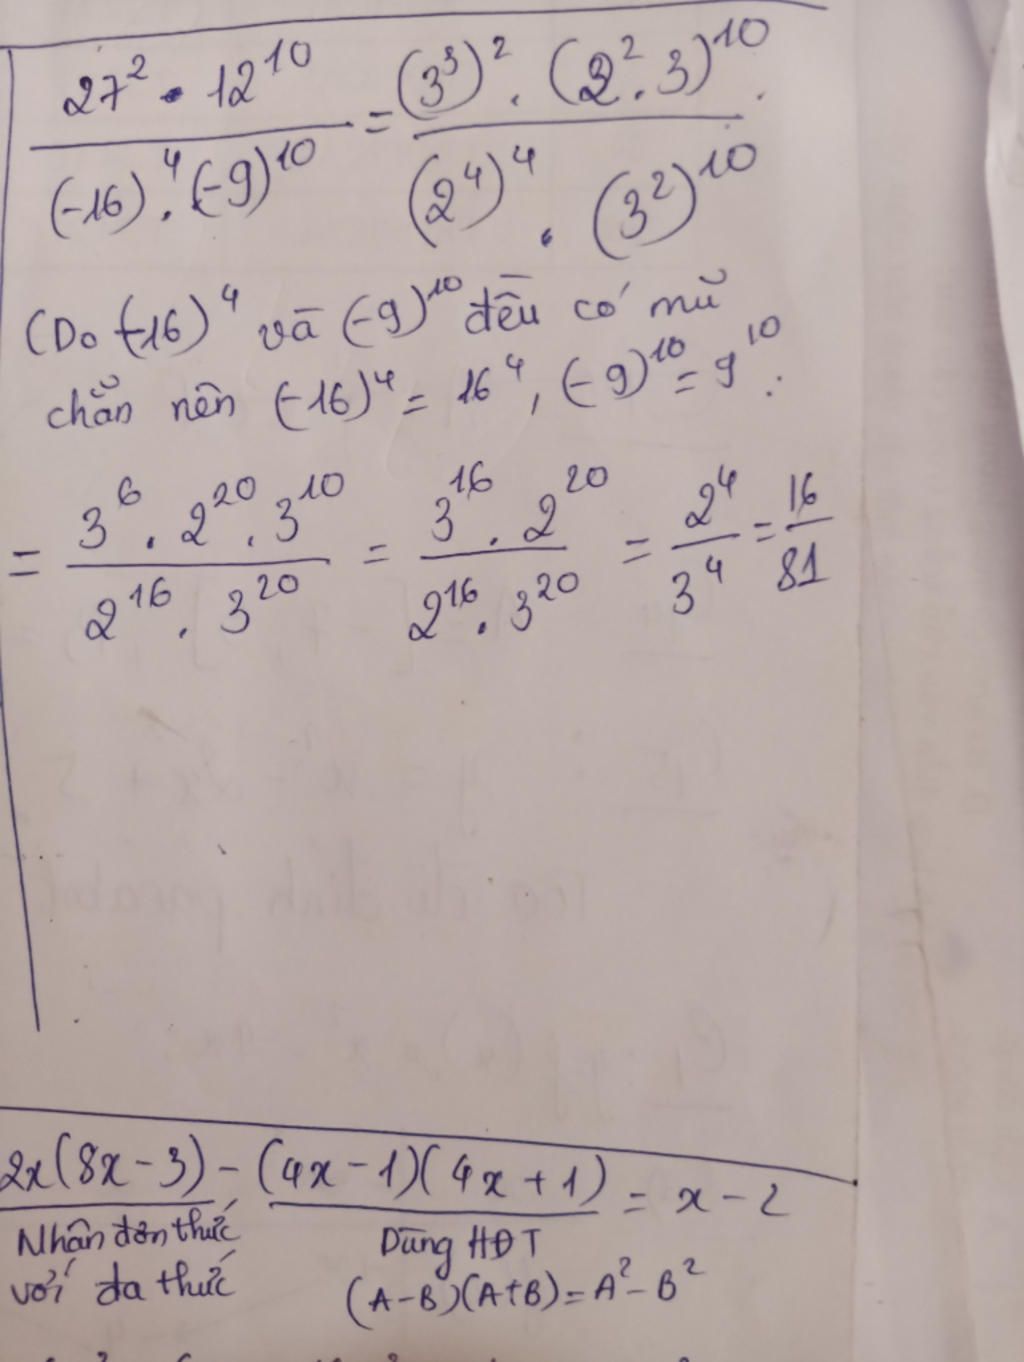 27² . 12¹⁰ / (-16)⁴ . (-9)¹⁰ = (3³)² . (2² . 3)¹⁰ / (2⁴)⁴ . (3²)¹⁰
(Do (-16)⁴ và (-9)¹⁰ đều có mũ
chẵn nên (-16)⁴ = 16⁴, (-9)¹⁰ = 9¹⁰.
= 3⁶ . 2²⁰ . 3¹⁰ / 2¹⁶ . 3²⁰ = 3¹⁶ . 2²⁰ / 2¹⁶ . 3²⁰ = 2⁴ / 3⁴ = 16 / 81
2x(8x - 3) - (4x - 1)(4x + 1) = x - 2
Nhân đơn thức Dùng HĐT
với đa thức (A-B)(A+B) = A² - B²